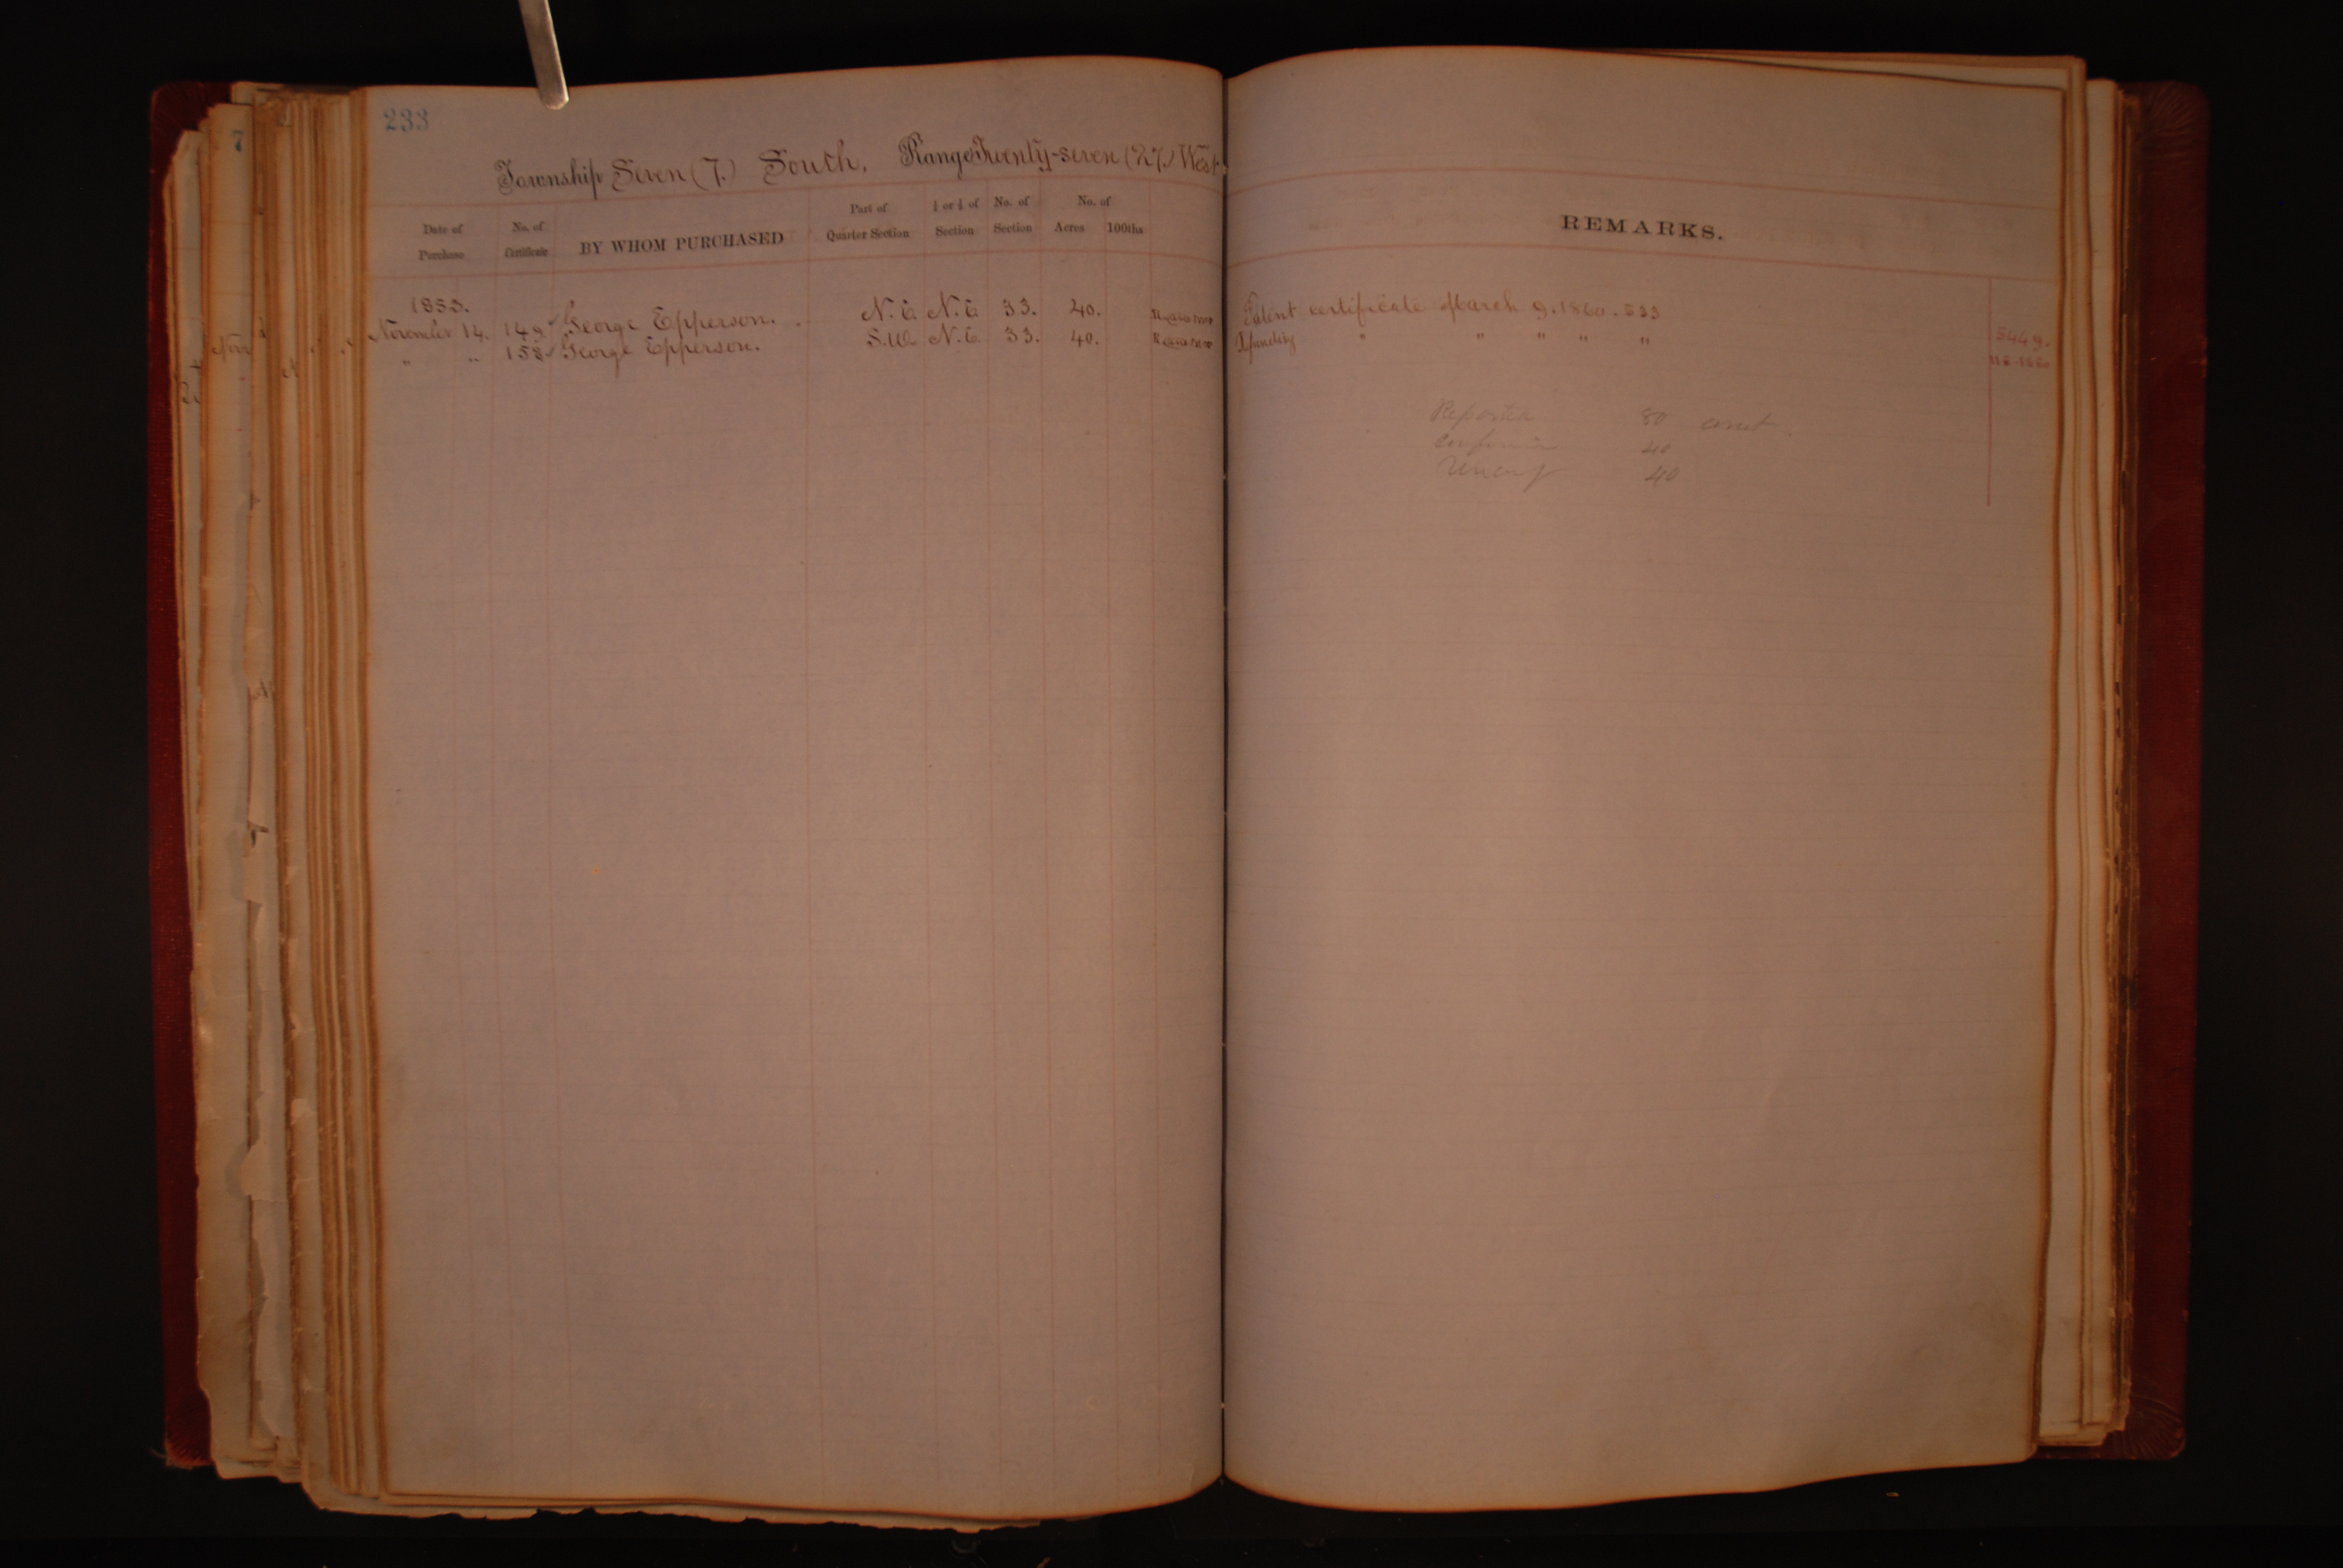 233
7
Township Seven (7.) South, Range Twenty-seven (27.) West
Date of Purchase
No. of Certificate
BY WHOM PURCHASED
Part of Quarter Section
½ or ¼ of Section
No. of Section
No. of Acres 100ths
REMARKS.
1853.
November 14. 149 George Epperson. N.E. N.E. 33. 40. Patent certificate March 9. 1860. 533
" " 158 George Epperson. S.W. N.E. 33. 40. " " " " "
5449.
Reported 80 correct
Confirmed 40
Unconf 40